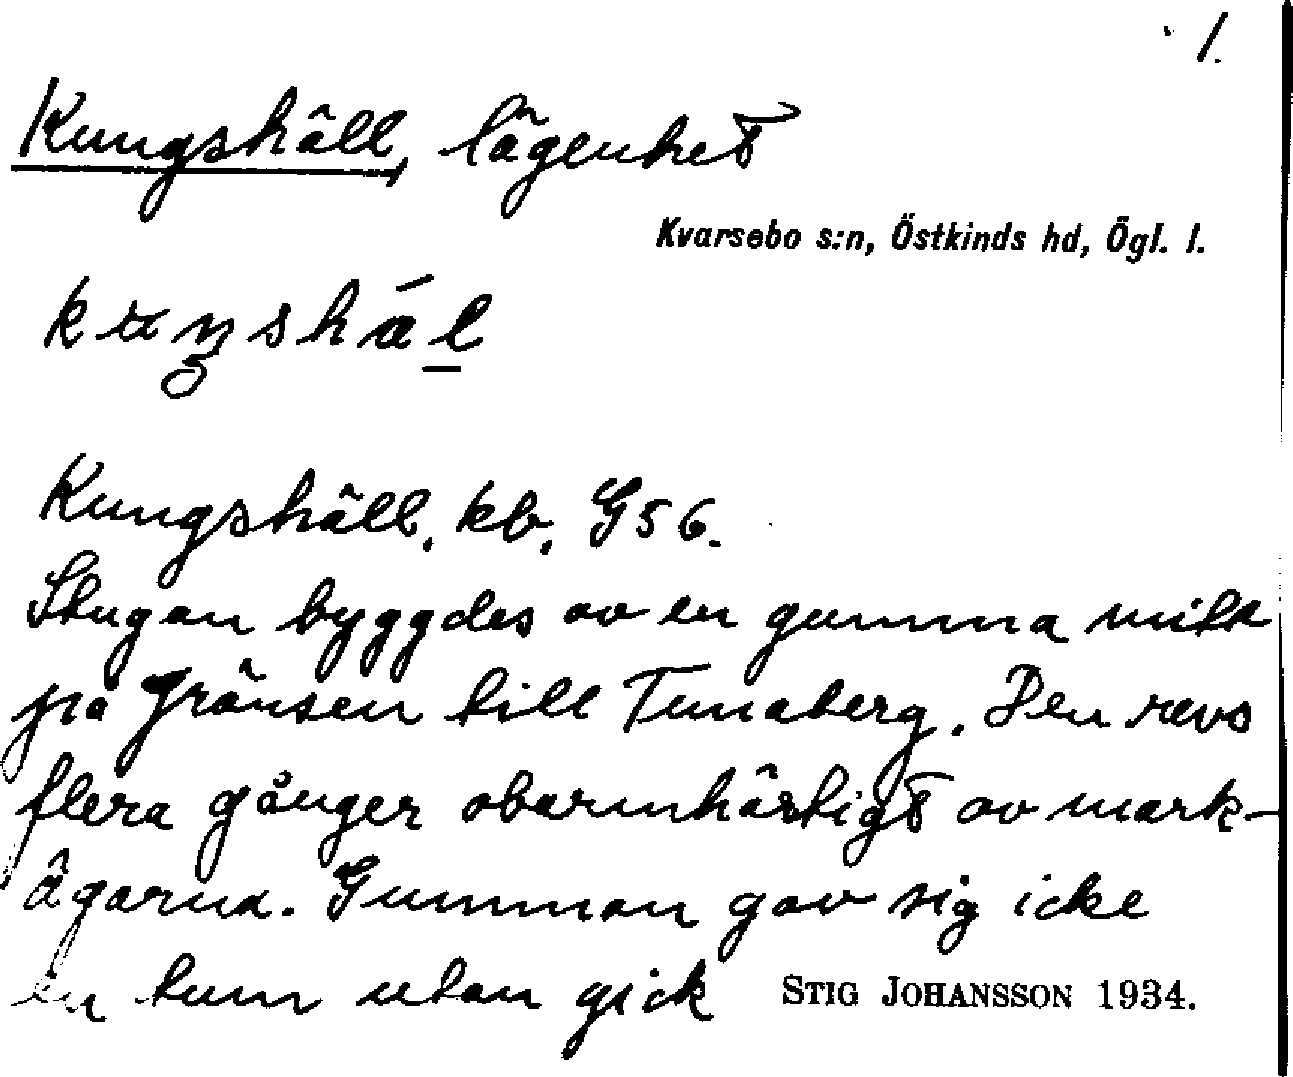 1.
Kungshäll, lägenhet
Kvarsebo s:n, Östkinds hd, Ögl. l.
Kungshäll. kb. G56.
Stugan byggdes av en gumma mitt
på gränsen till Tunaberg. Den revs
flera gånger obarmhärtigt av mark-
ägarna. Gumman gav sig icke
en tum utan gick
STIG JOHANSSON 1934.